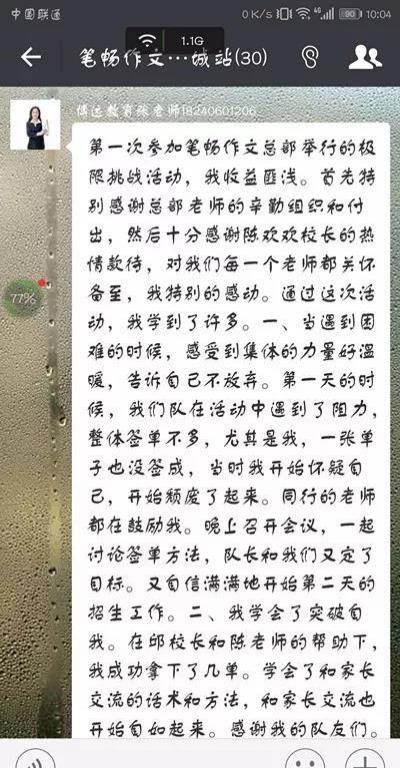 中国联通 0 K/s 4G 90 10:04
1.1G
笔畅作文…城站(30)
博远教育张老师18240601206
第一次参加笔畅作文总部举行的极
限挑战活动，我收益匪浅。首先特
别感谢总部老师的辛勤组织和付
出，然后十分感谢陈欢欢校长的热
情款待，对我们每一个老师都关怀
备至，我特别的感动。通过这次活
动，我学到了许多。一、当遇到困
难的时候，感受到集体的力量好温
暖，告诉自己不放弃。第一天的时
候，我们队在活动中遇到了阻力，
整体签单不多，尤其是我，一张单
子也没签成，当时我开始怀疑自
己，开始颓废了起来。同行的老师
都在鼓励我。晚上召开会议，一起
讨论签单方法，队长和我们又定了
目标。又自信满满地开始第二天的
招生工作。二、我学会了突破自
我。在邱校长和陈老师的帮助下，
我成功拿下了几单。学会了和家长
交流的话术和方法，和家长交流也
开始自如起来。感谢我的队友们。
77%